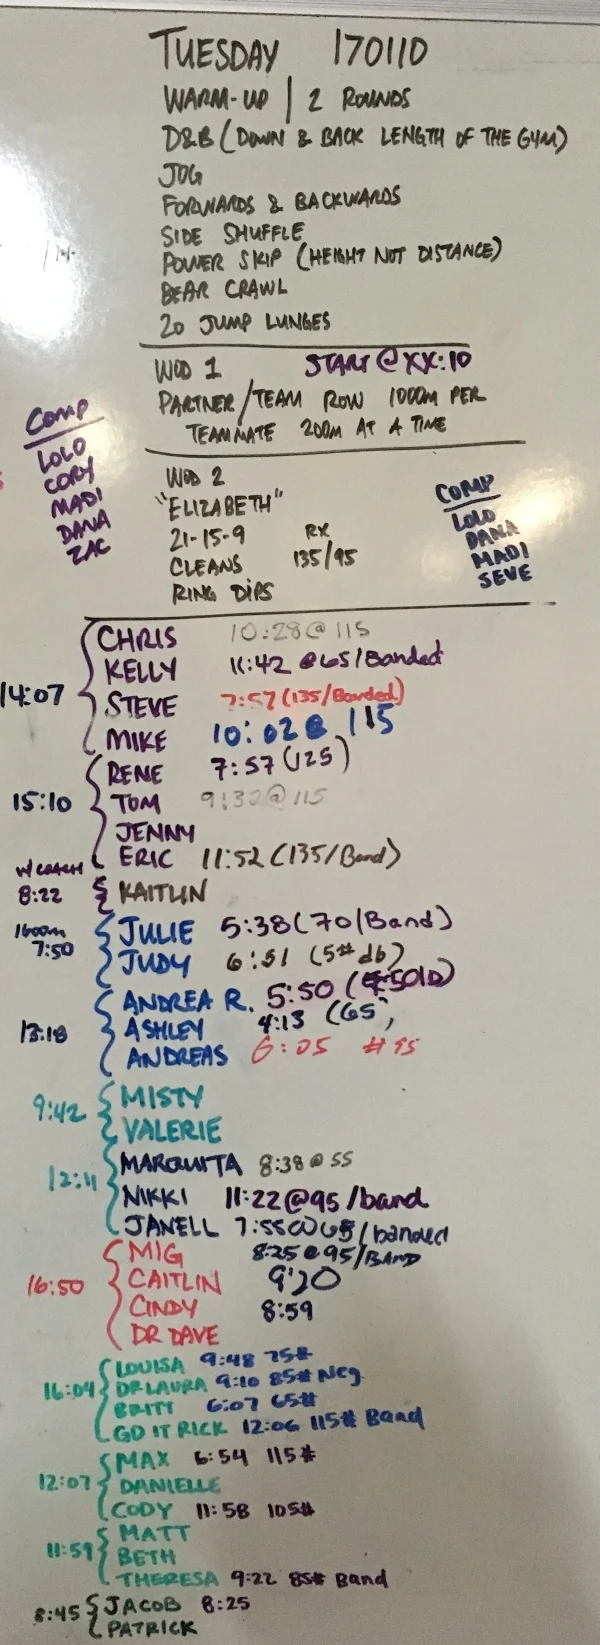 TUESDAY 170110
WARM-UP | 2 ROUNDS
D&B (DOWN & BACK LENGTH OF THE GYM)
JOG
FORWARDS & BACKWARDS
SIDE SHUFFLE
POWER SKIP (HEIGHT NOT DISTANCE)
BEAR CRAWL
20 JUMP LUNGES
WOD 1 START @ XX:10
PARTNER/TEAM ROW 1000M PER
TEAMMATE 200M AT A TIME
COMP
LOLO
CORY
MADI
DANA
ZAC
WOD 2
"ELIZABETH"
21-15-9 RX
CLEANS 135/95
RING DIPS
COMP
LOLO
DANA
MADI
SEVE
14:07
CHRIS 10:28@115
KELLY 11:42 @65/Banded
STEVE 7:57 (135/Banded)
MIKE 10:02@ 115
15:10
RENE 7:57 (125)
TOM 9:32@115
JENNY
ERIC 11:52 (135/Band)
W/COACH
8:22 KAITLIN
1600m
7:50
JULIE 5:38 (70/Band)
JUDY 6:51 (5# db)
13:18
ANDREA R. 5:50
ASHLEY 4:13 (65)
ANDREAS 6:05 #95
9:42
MISTY
VALERIE
12:11
MARQUITA 8:38@55
NIKKI 11:22@95/band
JANELL 7:55@65/banded
16:50
MIG 8:25@95/BAND
CAITLIN 9:20
CINDY 8:59
DR DAVE
16:04
LOUISA 9:48 75#
DR LAURA 9:10 85# Neg
BRITT 6:07 65#
GO IT RICK 12:06 115# Band
12:07
MAX 6:54 115#
DANIELLE
CODY 11:58 105#
11:59
MATT
BETH
THERESA 9:22 85# Band
8:45
JACOB 8:25
PATRICK